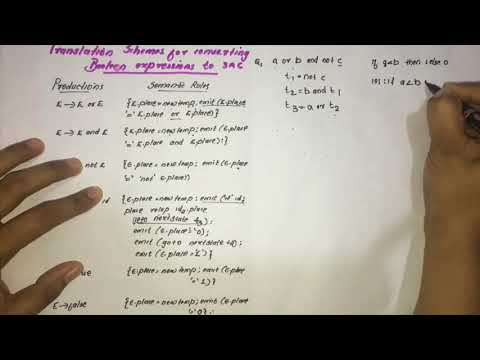 Translation Schemes for converting
Boolean expressions to 3AC
Productions Semantic Rules
E → E or E {E.place = newtemp; emit (E.place
'=' E.place or E.place)}
E → E and E {E.place = newtemp; emit (E.place
'=' E.place and E.place);}
not E {E.place = newtemp; emit (E.place
'=' 'not' E.place)}
id {E.place = newtemp; emit ('if' id,
place relop id2.place
goto nextstate +3);
emit (E.place '=' '0');
emit (goto nextstate +2);
emit (E.place = '1')}
ue {E.place = newtemp; emit (E.place
'=' 1)}
E → false {E.place = newtemp; emit (E.place
'=' 0)}
Q, a or b and not c
t1 = not c
t2 = b and t1
t3 = a or t2
if a<b then 1 else 0
101: if a<b